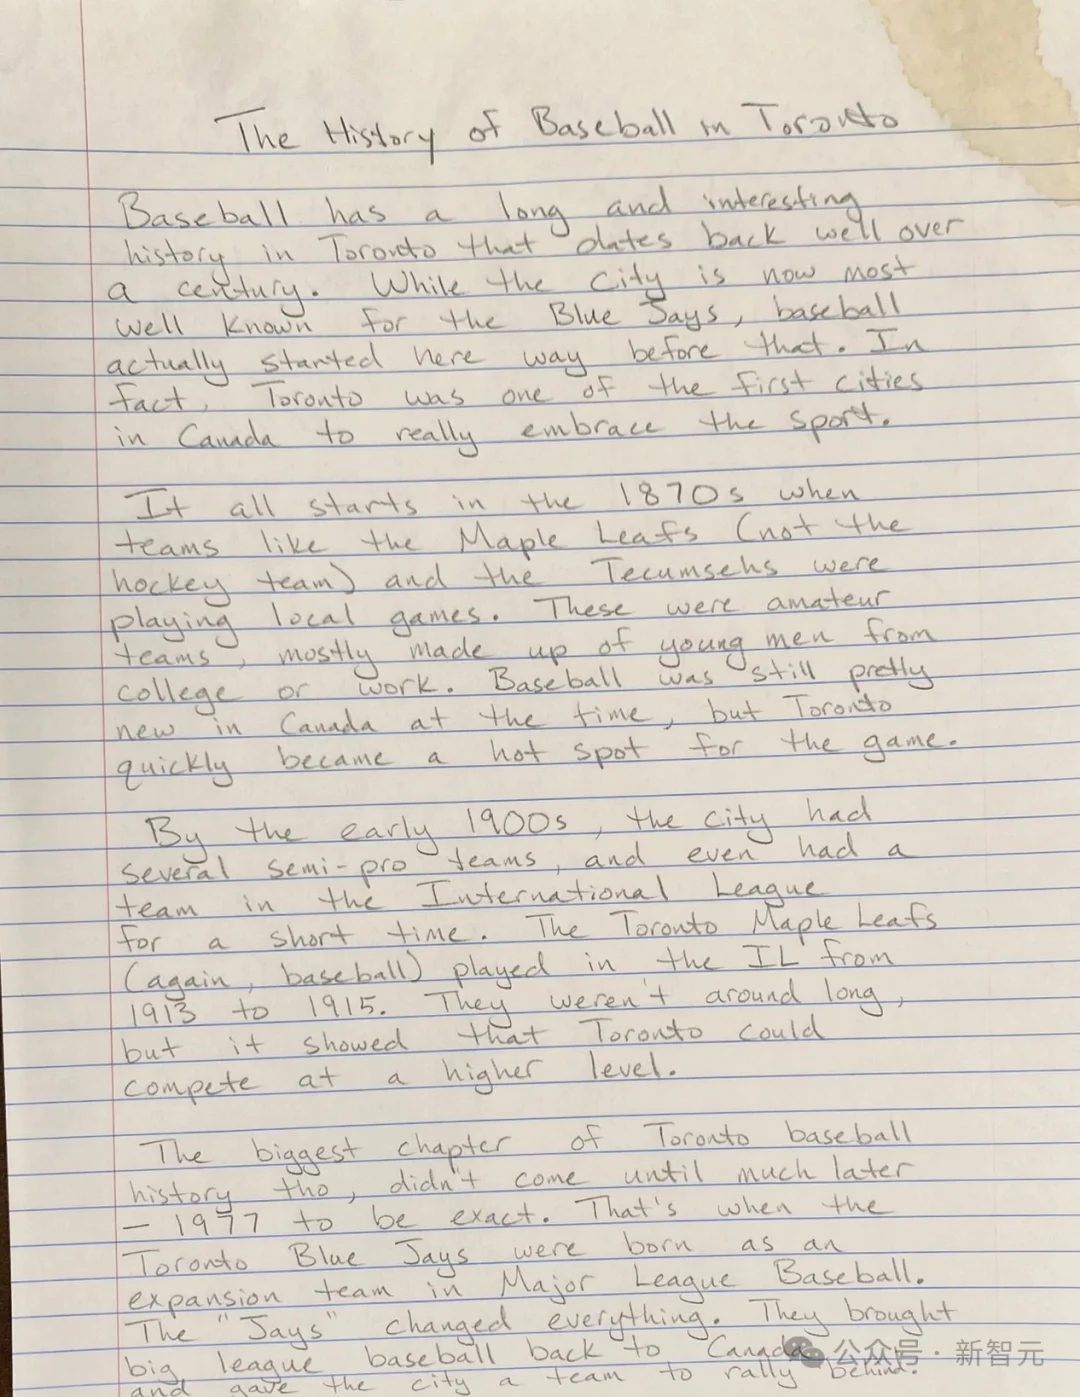 The History of Baseball in Toronto
Baseball has a long and interesting
history in Toronto that dates back well over
a century. While the city is now most
well known for the Blue Jays, baseball
actually started here way before that. In
fact, Toronto was one of the first cities
in Canada to really embrace the sport.
It all starts in the 1870s when
teams like the Maple Leafs (not the
hockey team) and the Tecumsehs were
playing local games. These were amateur
teams, mostly made up of young men from
college or work. Baseball was still pretty
new in Canada at the time, but Toronto
quickly became a hot spot for the game.
By the early 1900s, the city had
several semi-pro teams, and even had a
team in the International League
for a short time. The Toronto Maple Leafs
(again, baseball) played in the IL from
1913 to 1915. They weren't around long,
but it showed that Toronto could
compete at a higher level.
The biggest chapter of Toronto baseball
history tho, didn't come until much later
— 1977 to be exact. That's when the
Toronto Blue Jays were born as an
expansion team in Major League Baseball.
The "Jays" changed everything. They brought
big league baseball back to Canada
and gave the city a team to rally behind.
公众号 · 新智元